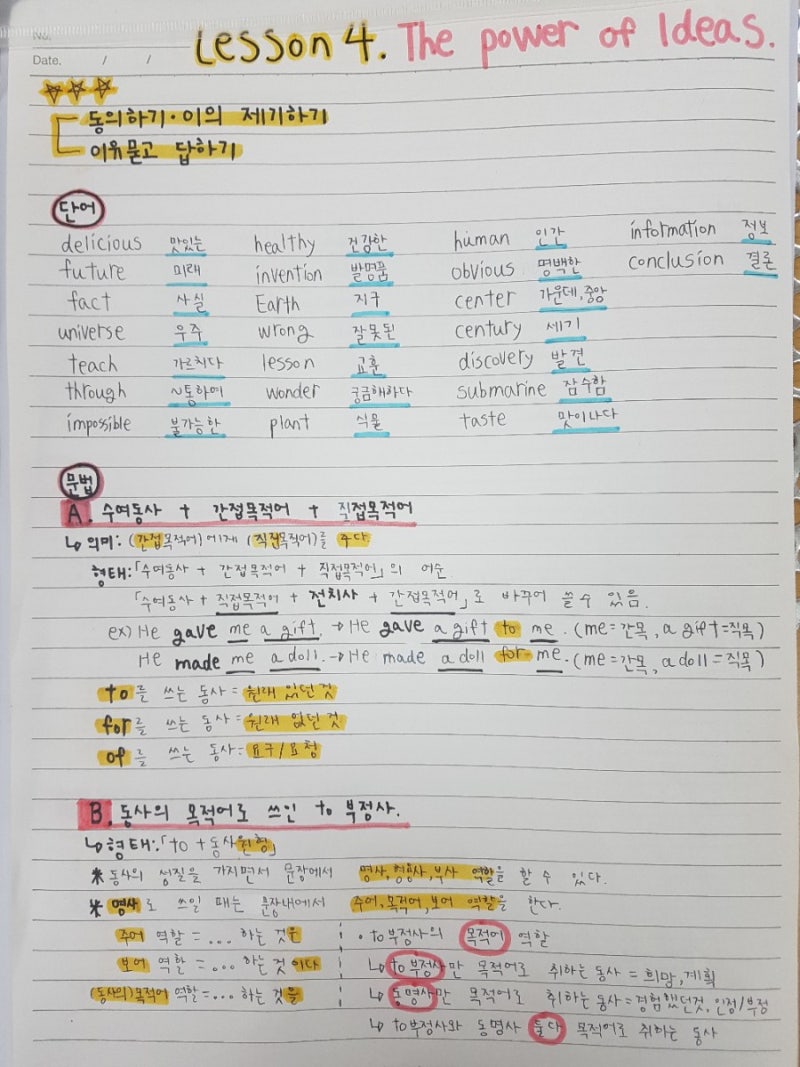 No.
Date. / /
Lesson 4. The power of Ideas.
동의하기·이의 제기하기
이유묻고 답하기
단어
delicious 맛있는 healthy 건강한 human 인간 information 정보
future 미래 invention 발명품 obvious 명백한 conclusion 결론
fact 사실 Earth 지구 center 가운데,중앙
universe 우주 wrong 잘못된 century 세기
teach 가르치다 lesson 교훈 discovery 발견
through ~통하여 wonder 궁금해하다 submarine 잠수함
impossible 불가능한 plant 식물 taste 맛이나다
문법
A. 수여동사 + 간접목적어 + 직접목적어
↳ 의미: (간접목적어)에게 (직접목적어)를 주다
형태:「수여동사 + 간접목적어 + 직접목적어」의 어순
「수여동사 + 직접목적어 + 전치사 + 간접목적어」로 바꾸어 쓸 수 있음.
ex) He gave me a gift. → He gave a gift to me. (me=간목, a gift=직목)
He made me a doll. → He made a doll for me. (me=간목, a doll=직목)
to를 쓰는 동사 = 원래 있던것
for를 쓰는 동사 = 원래 없던 것
of를 쓰는 동사 = 요구/요청
B. 동사의 목적어로 쓰인 to 부정사.
↳형태:「to + 동사원형」
※ 동사의 성질을 가지면서 문장에서 명사,형용사,부사 역할을 할 수 있다.
※ 명사로 쓰일 때는 문장내에서 주어,목적어,보어 역할을 한다.
주어 역할 = ... 하는 것은 · to부정사의 목적어 역할
보어 역할 = ... 하는 것 이다 ↳ to부정사만 목적어로 취하는 동사 = 희망,계획
(동사의)목적어 역할 = ... 하는 것을 ↳ 동명사만 목적어로 취하는 동사=경험했던것, 인정/부정
↳ to부정사와 동명사 둘다 목적어로 취하는 동사